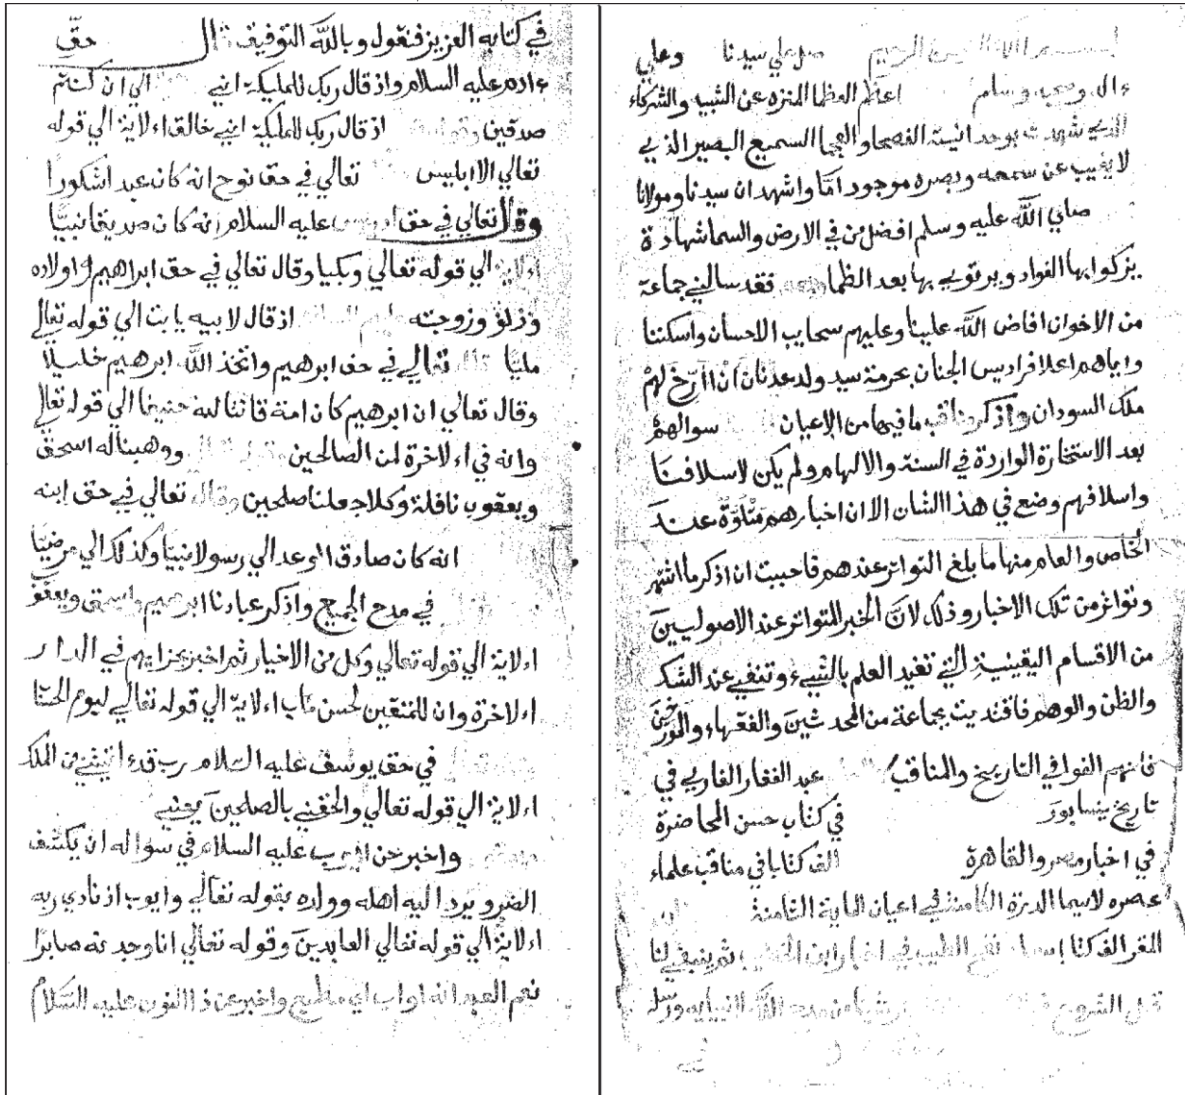 صلى على سيدنا وعلي
ءاله وصحبه وسلم اعظم العظما المنزه عن الشبيه والشركاء
الذي شهدت بوحدانيته الفصحا والعجما السميع البصير الذي
لا يغيب عن سمعه وبصره موجود امّا واشهد ان سيدنا ومولانا
صلي الله عليه وسلم افضل من في الارض والسما شهادة
يزكوا بها الفواد ويرتوي بها بعد الظما فقد سالني جماعة
من الاخوان افاض الله علينا وعليهم سحايب الاحسان واسكننا
واياهم اعلا فراديس الجنان بحرمة سيد ولد عدنان ان اارّخ لهم
ملك السودان واذكر مناقب ما فيها من الاعيان سوالهم
بعد الاستخارة الواردة في السنة والالهام ولم يكن لاسلافنا
واسلافهم وضع في هذا الشان الا ان اخبارهم متلوّة عند
الخاص والعام منها ما بلغ التواتر عندهم فاحببت ان اذكر ما اشتهر
وتواتر من تلك الاخبار وذلك لانّ الخبر المتواتر عند الاصوليين
من الاقسام اليقينية التي تفيد العلم بالشيء وتنفي عند الشك
والظن والوهم فاقتديت بجماعة من المحدثين والفقهاء والمورخين
فانهم الفوا في التاريخ والمناقب عبد الغفار الفارسي في
تاريخ نيسابور في كتاب حسن المحاضرة
في اخبار مصر والقاهرة الف كتابا في مناقب علماء
عصره لاسيما الدرة الكامنة في اعيان الماية الثامنة
الف كتابا نفح الطيب في اخبار ابن الخطيب ثم ينبغي لنا
قبل الشروع مدح الله انبيايه ورسله
في كتابه العزيز فنقول وبالله التوفيق قال حق
ءادم عليه السلام واذ قال ربك للمليكة اني الي ان كنتم
صدقين اذ قال ربك للمليكة اني خالق اءلاية الي قوله
تعالي الا ابليس تعالي في حق نوح انه كان عبدا شكورا
وقال تعالي في حق ادريس عليه السلام انه كان صديقا نبيّا
اءلاية الي قوله تعالي وبكيا وقال تعالي في حق ابراهيم واولاده
وزوجته اذ قال لابيه يابت الي قوله تعالي
مليّا تعالي في حق ابرهيم واتخذ الله ابرهيم خليلا
وقال تعالي ان ابرهيم كان امة قانتا لله حنيفا الي قوله تعالي
وانه في اءلاخرة لمن الصالحين ووهبنا له اسحق
ويعقوب نافلة وكلا جعلنا صلحين وقال تعالي في حق ابنه
انه كان صادق الوعد الي رسولا نبيا وكذلك الي مرضيّا
في مدح الجميع واذكر عبادنا ابرهيم واسحق ويعقو
اءلاية الي قوله تعالي وكل من الاخيار ثم اخبر بجزايهم في الدار
اءلاخرة وان للمتقين لحسن مئاب اءلاية الي قوله تعالي ليوم الحسا
في حق يوسف عليه السلام رب قدءاتيتني من الملك
اءلاية الي قوله تعالي والحقني بالصلحين يعني
واخبر عن ايوب عليه السلام في سواله ان يكشف
الضر ويرد اليه اهله وولده بقوله تعالي وايوب اذ نادي ربه
اءلاية الي قوله تعالي العابدين وقوله تعالي انا وجدنه صابرا
نعم العبد انه اواب اي مطيع واخبر عن ذا النون عليه السلام